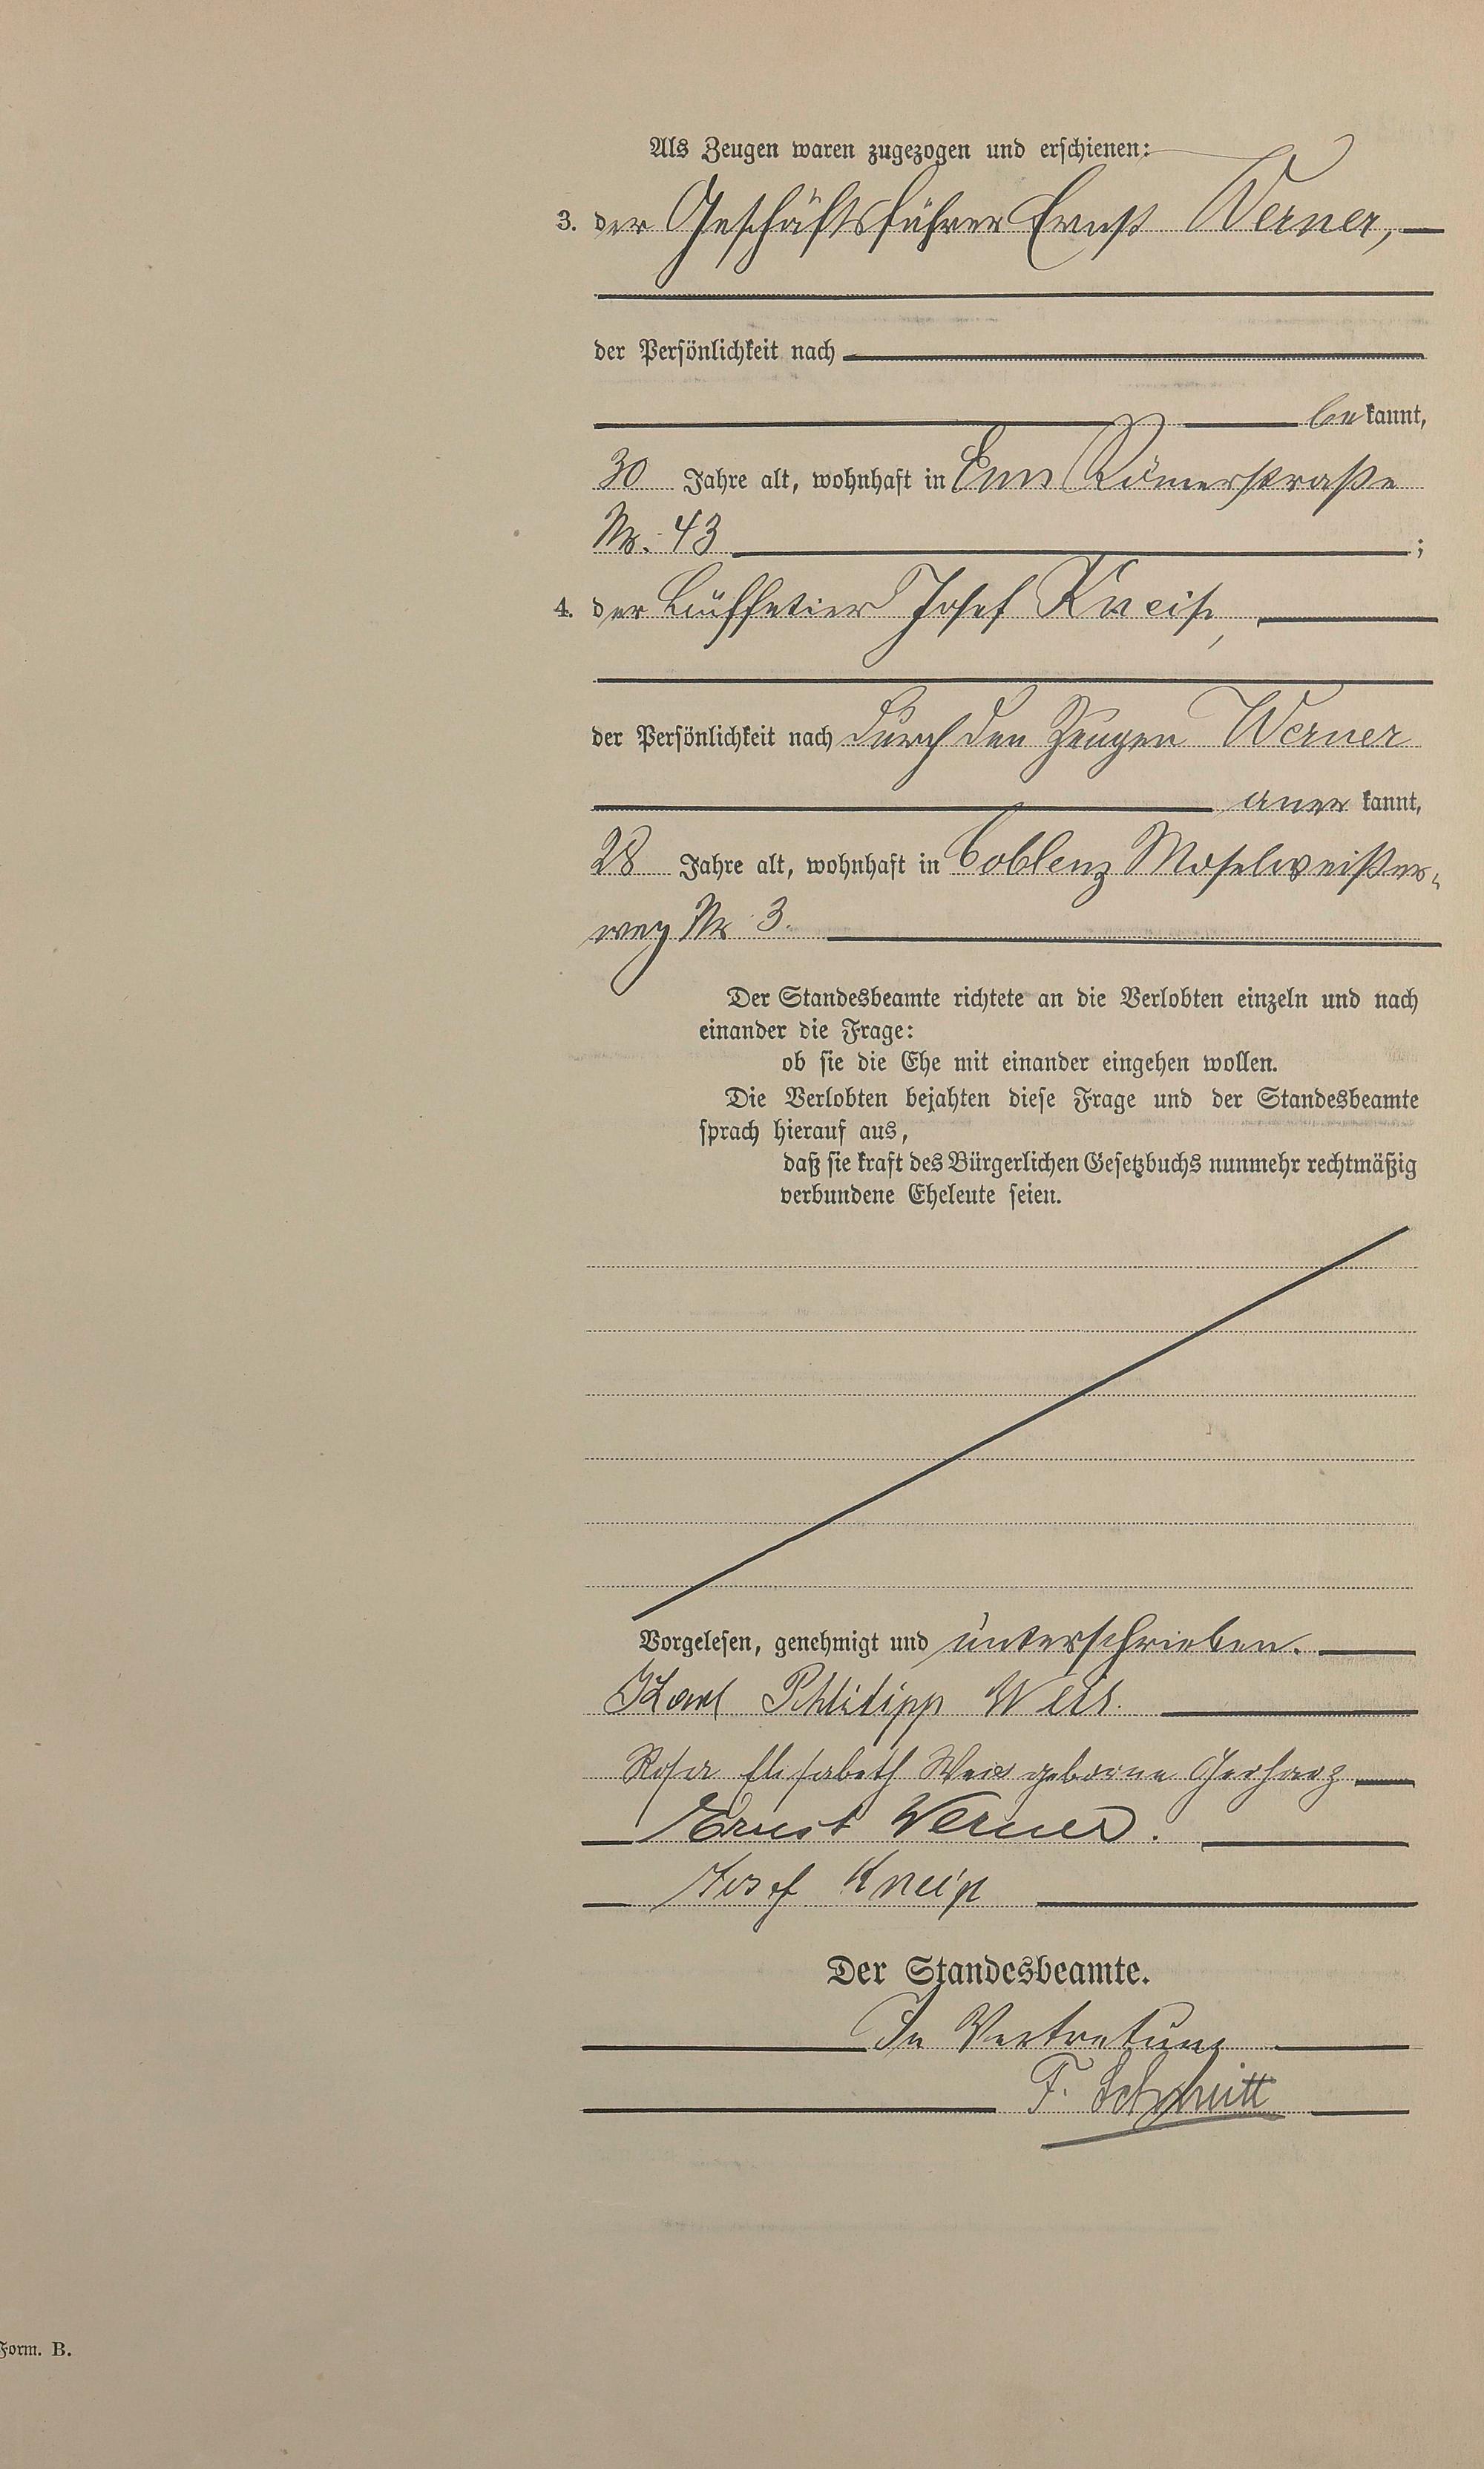 Als Zeugen waren zugezogen und erschienen:
3. der Geschäftsführer Ernst Werner,
der Persönlichkeit nach
be kannt,
30 Jahre alt, wohnhaft in Ems Römerstraße
Nr. 43 ;
4. der Büffetier Josef Kneip,
der Persönlichkeit nach durch den Zeugen Werner
aner kannt,
28 Jahre alt, wohnhaft in Coblenz Moselweißer-
weg Nr 3.
Der Standesbeamte richtete an die Verlobten einzeln und nach
einander die Frage:
ob sie die Ehe mit einander eingehen wollen.
Die Verlobten bejahten diese Frage und der Standesbeamte
sprach hierauf aus,
daß sie kraft des Bürgerlichen Gesetzbuchs nunmehr rechtmäßig
verbundene Eheleute seien.
Vorgelesen, genehmigt und unterschrieben.
Karl Philipp Weis.
Rosa Elisabeth Weis geborne Gerharz
Ernst Werner.
Josef Kneip
Der Standesbeamte.
In Vertretung
F. Schmitt
Form. B.